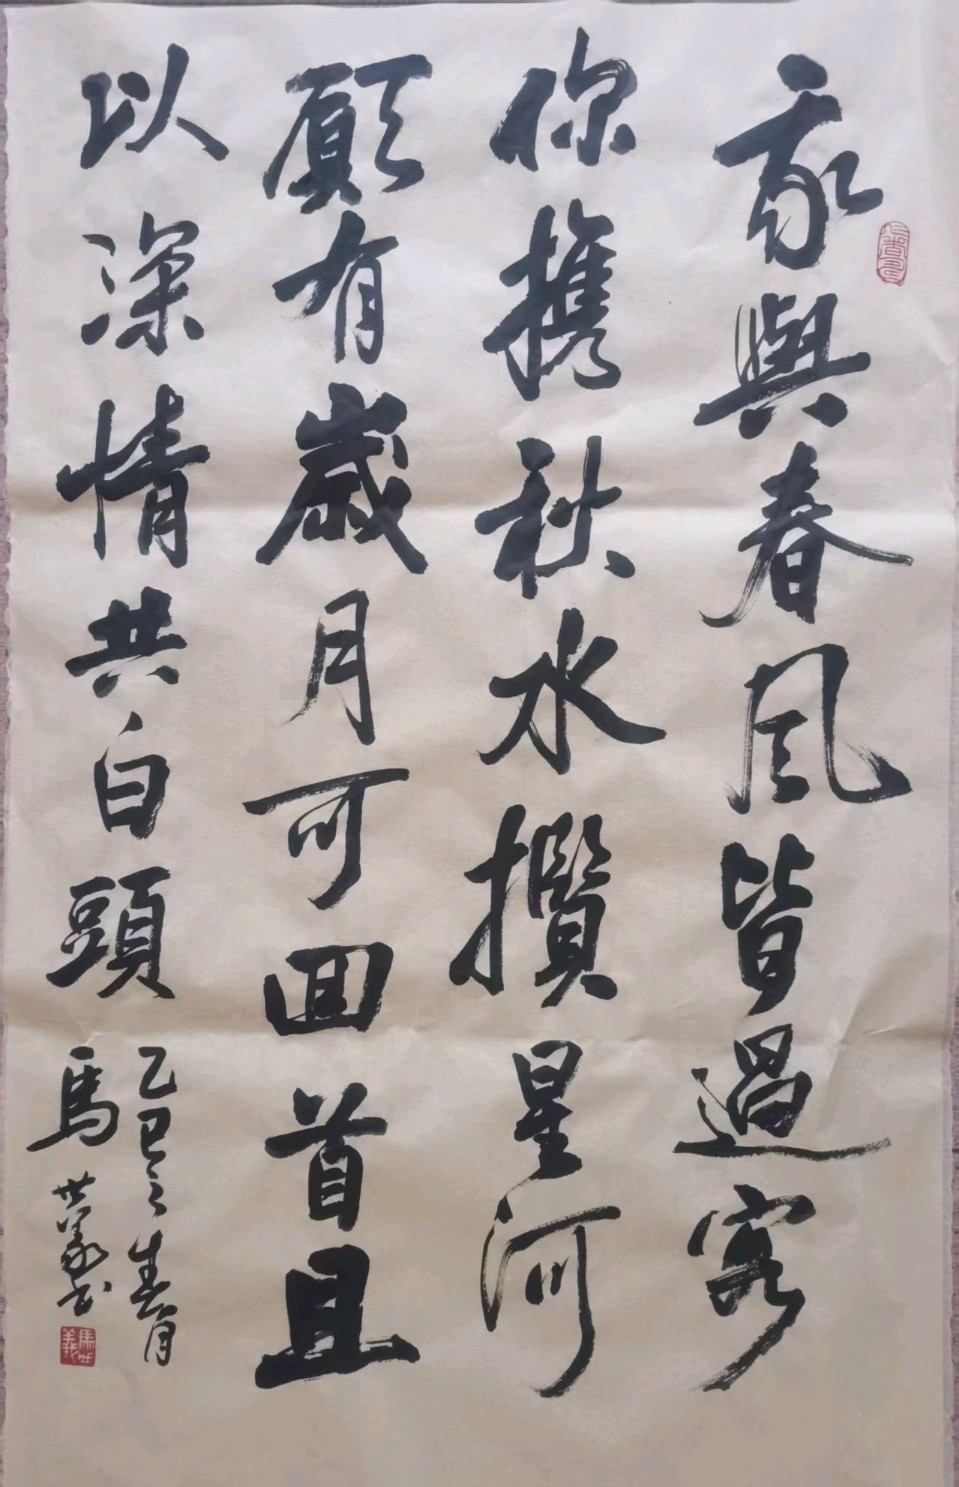 我與春風皆過客
你攜秋水攬星河
願有歲月可回首且
以深情共白頭
乙巳之春月
馬世義書
馬世義